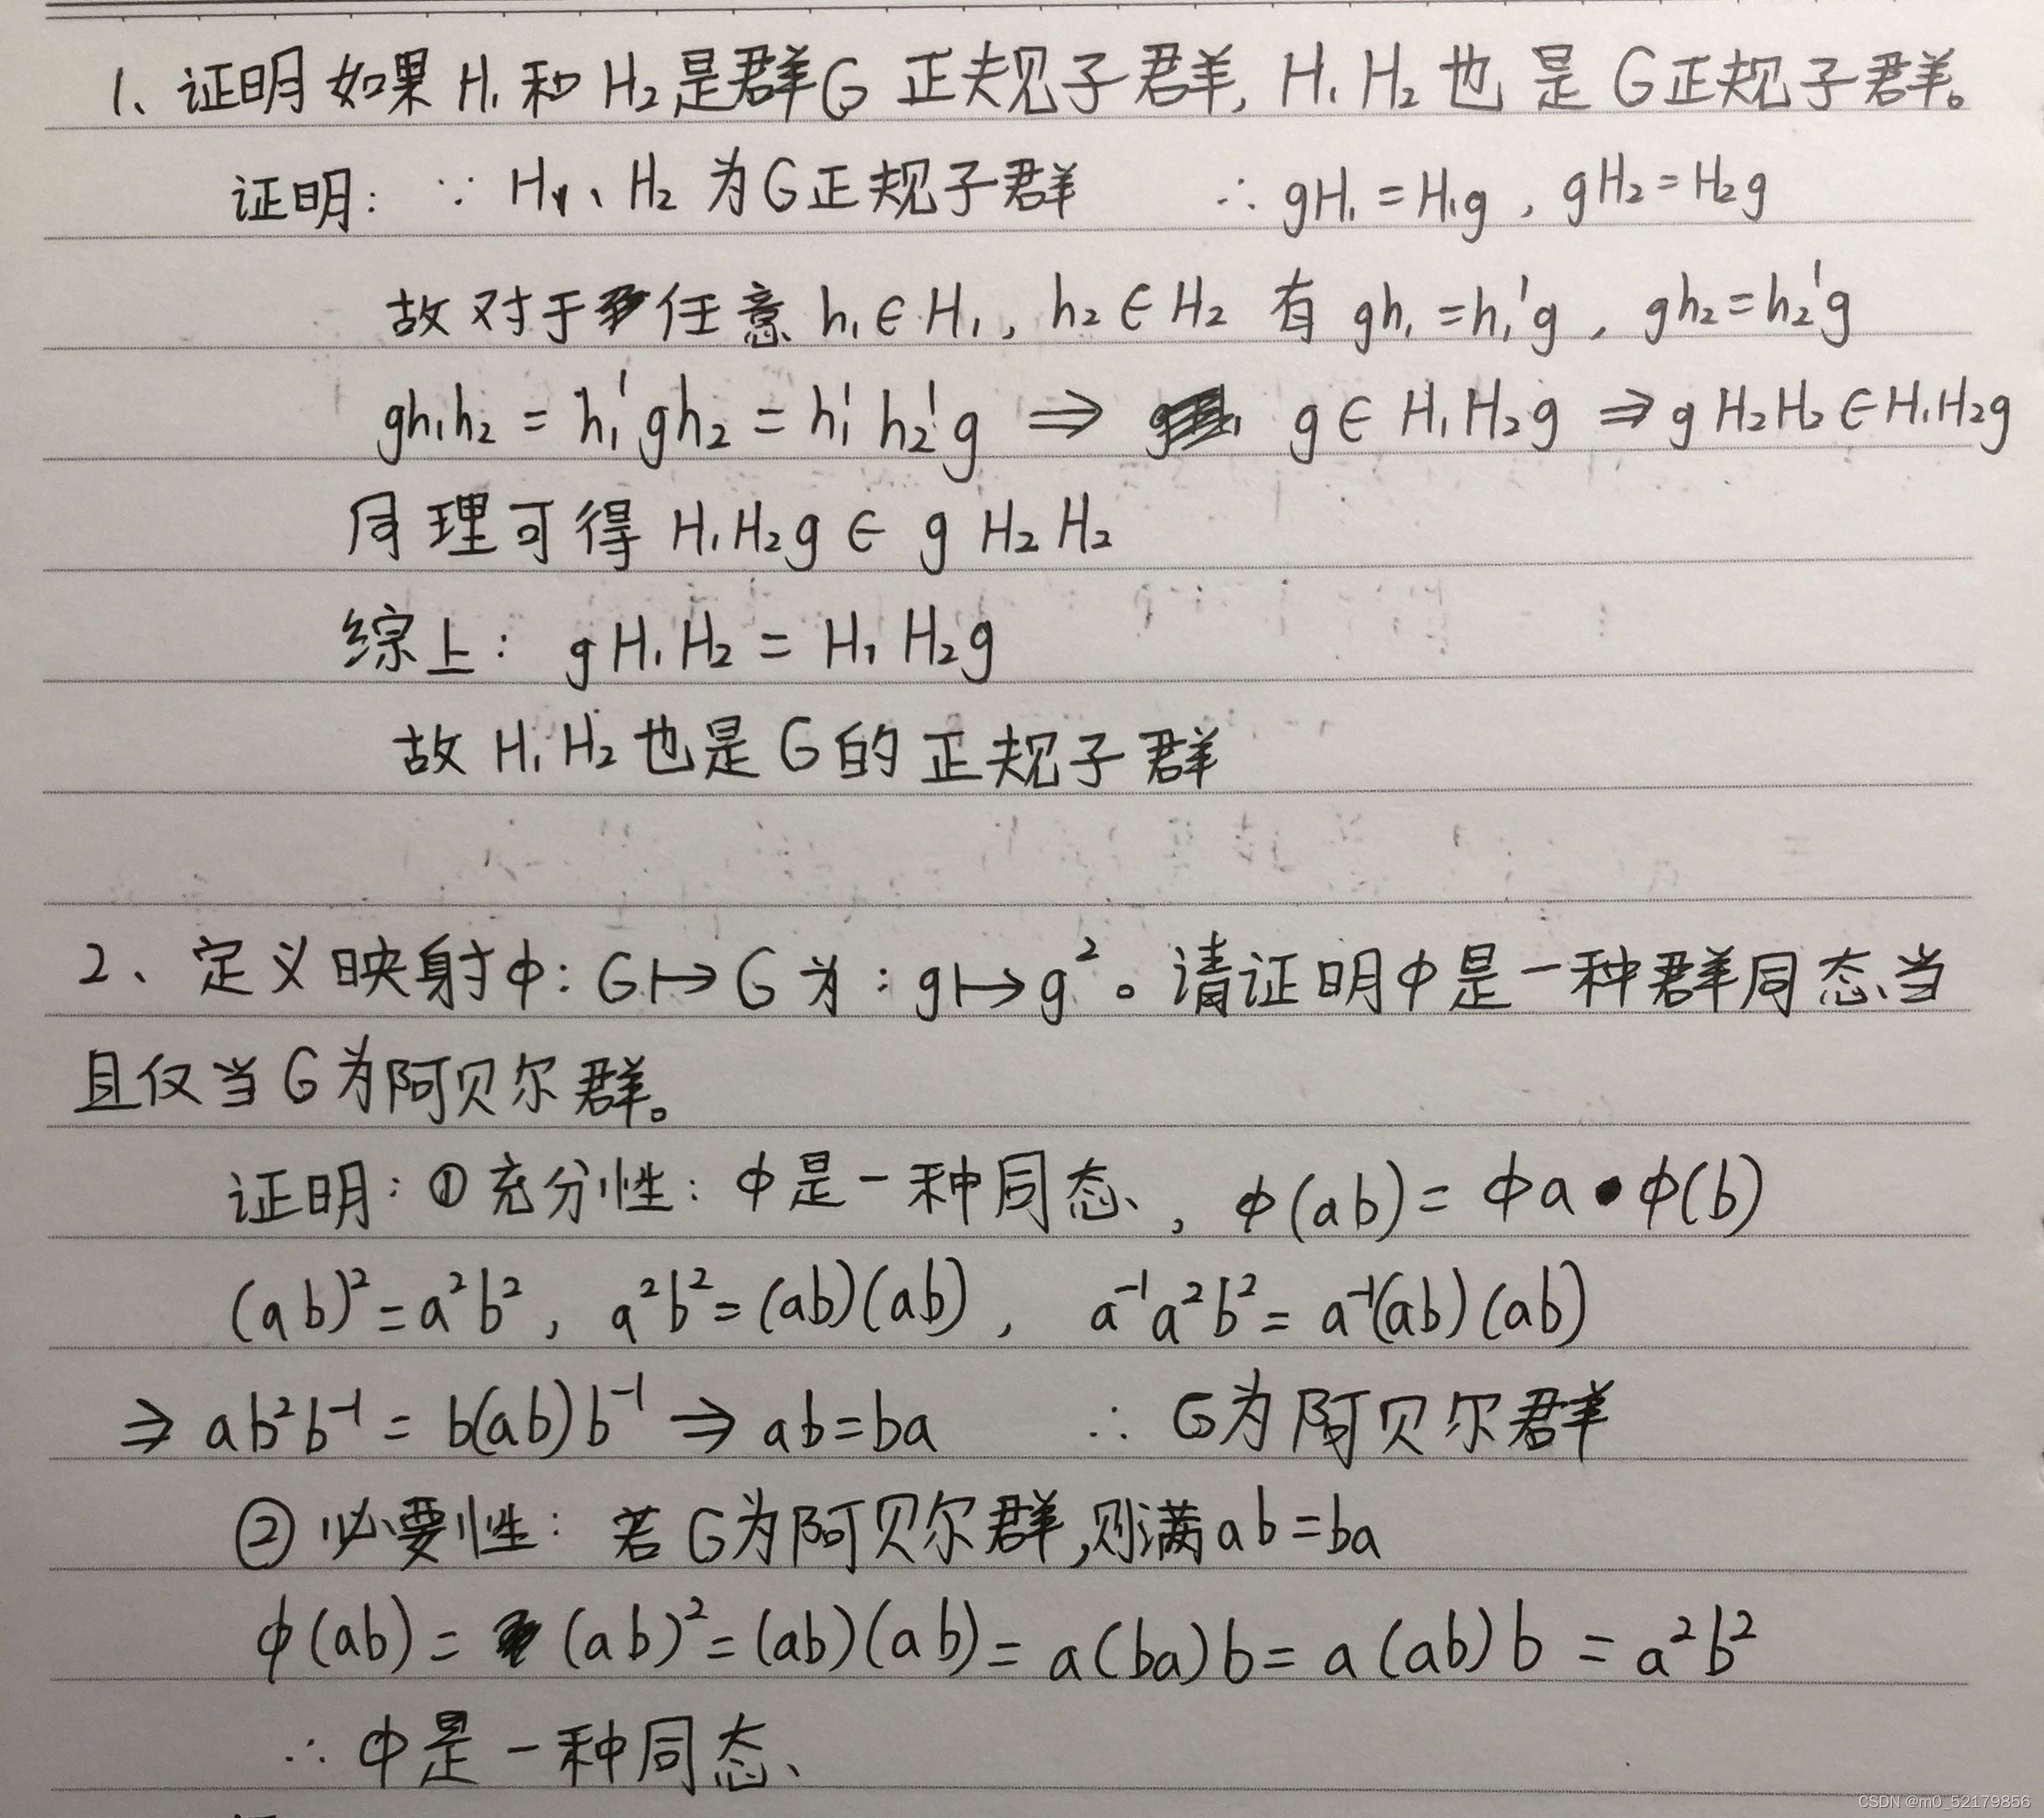 1、证明如果 H₁ 和 H₂ 是群G 正规子群, H₁H₂ 也是 G正规子群。
证明: ∵ H₁、H₂ 为G正规子群 ∴ gH₁=H₁g, gH₂=H₂g
故对于任意 h₁∈H₁, h₂∈H₂ 有 gh₁=h₁'g, gh₂=h₂'g
gh₁h₂ = h₁'gh₂ = h₁'h₂'g ⇒ g∈H₁H₂g ⇒ gH₂H₂∈H₁H₂g
同理可得 H₁H₂g ∈ gH₂H₂
综上: gH₁H₂ = H₁H₂g
故 H₁H₂ 也是G的正规子群
2、定义映射φ: G↦G 为: g↦g²。请证明φ是一种群同态当
且仅当G为阿贝尔群。
证明: ①充分性: φ是一种同态, φ(ab)=φa•φ(b)
(ab)²=a²b², a²b²=(ab)(ab), a⁻¹a²b²=a⁻¹(ab)(ab)
⇒ ab²b⁻¹=b(ab)b⁻¹ ⇒ ab=ba ∴ G为阿贝尔群
②必要性: 若G为阿贝尔群,则满ab=ba
φ(ab)=(ab)²=(ab)(ab)=a(ba)b=a(ab)b=a²b²
∴ φ是一种同态
CSDN @m0_52179856